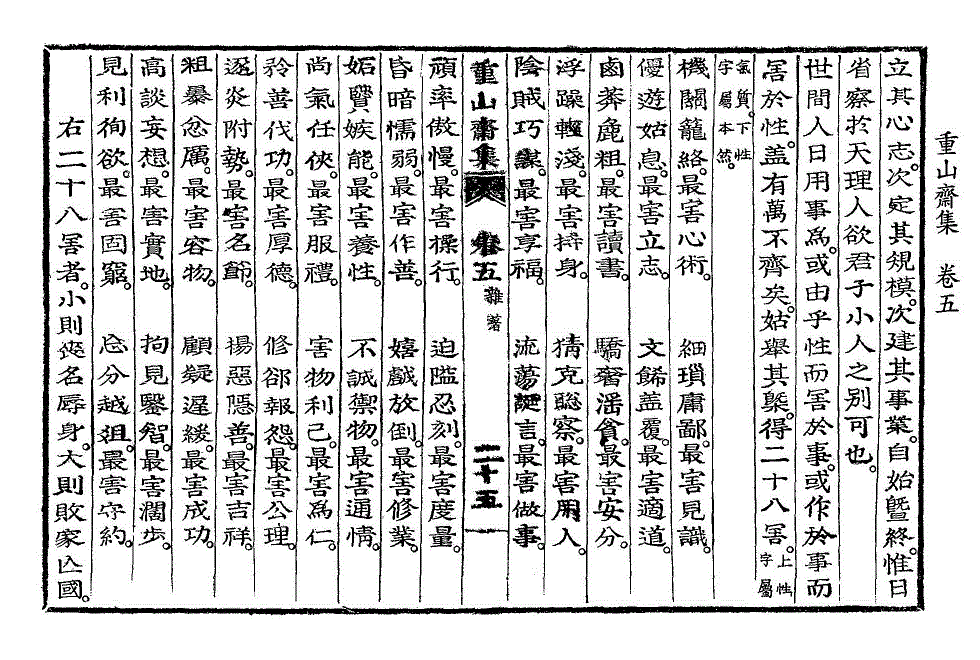 重山齋集 卷五
立其心志。次定其規模。次建其事業。自始曁終。惟日
省察於天理人欲君子小人之別可也。
世間人日用事爲。或由乎性而害於事。或作於事而
害於性。盖有萬不齊矣。姑擧其槩。得二十八害。上性字屬
氣質。下性字屬本然。
機關籠絡。最害心術。 細瑣庸鄙。最害見識。
優遊姑息。最害立志。 文餙盖覆。最害適道。
鹵莽麁粗。最害讀書。 驕奢滛貪。最害安分。
浮躁輕淺。最害持身。 猜克聡察。最害用人。
陰賊巧謀。最害享福。 流蕩誕言。最害做事。
重山齋集 卷五 雜著 二十五
頑率傲慢。最害操行。 迫隘忍刻。最害度量。
昏暗懦弱。最害作善。 嬉戱放倒。最害修業。
妬賢嫉能。最害養性。 不誠禦物。最害通情。
尚氣任俠。最害服禮。 害物利己。最害爲仁。
矜善伐功。最害厚德。 修郤報怨。最害公理。
逐炎附勢。最害名節。 楊惡隱善。最害吉祥。
粗暴忿厲。最害容物。 顧疑遲緩。最害成功。
高談妄想。最害實地。 拘見鑿智。最害濶步。
見利徇欲。最害固窮。 忘分越俎。最害守約。
右二十八害者。小則喪名辱身。大則敗家亾國。